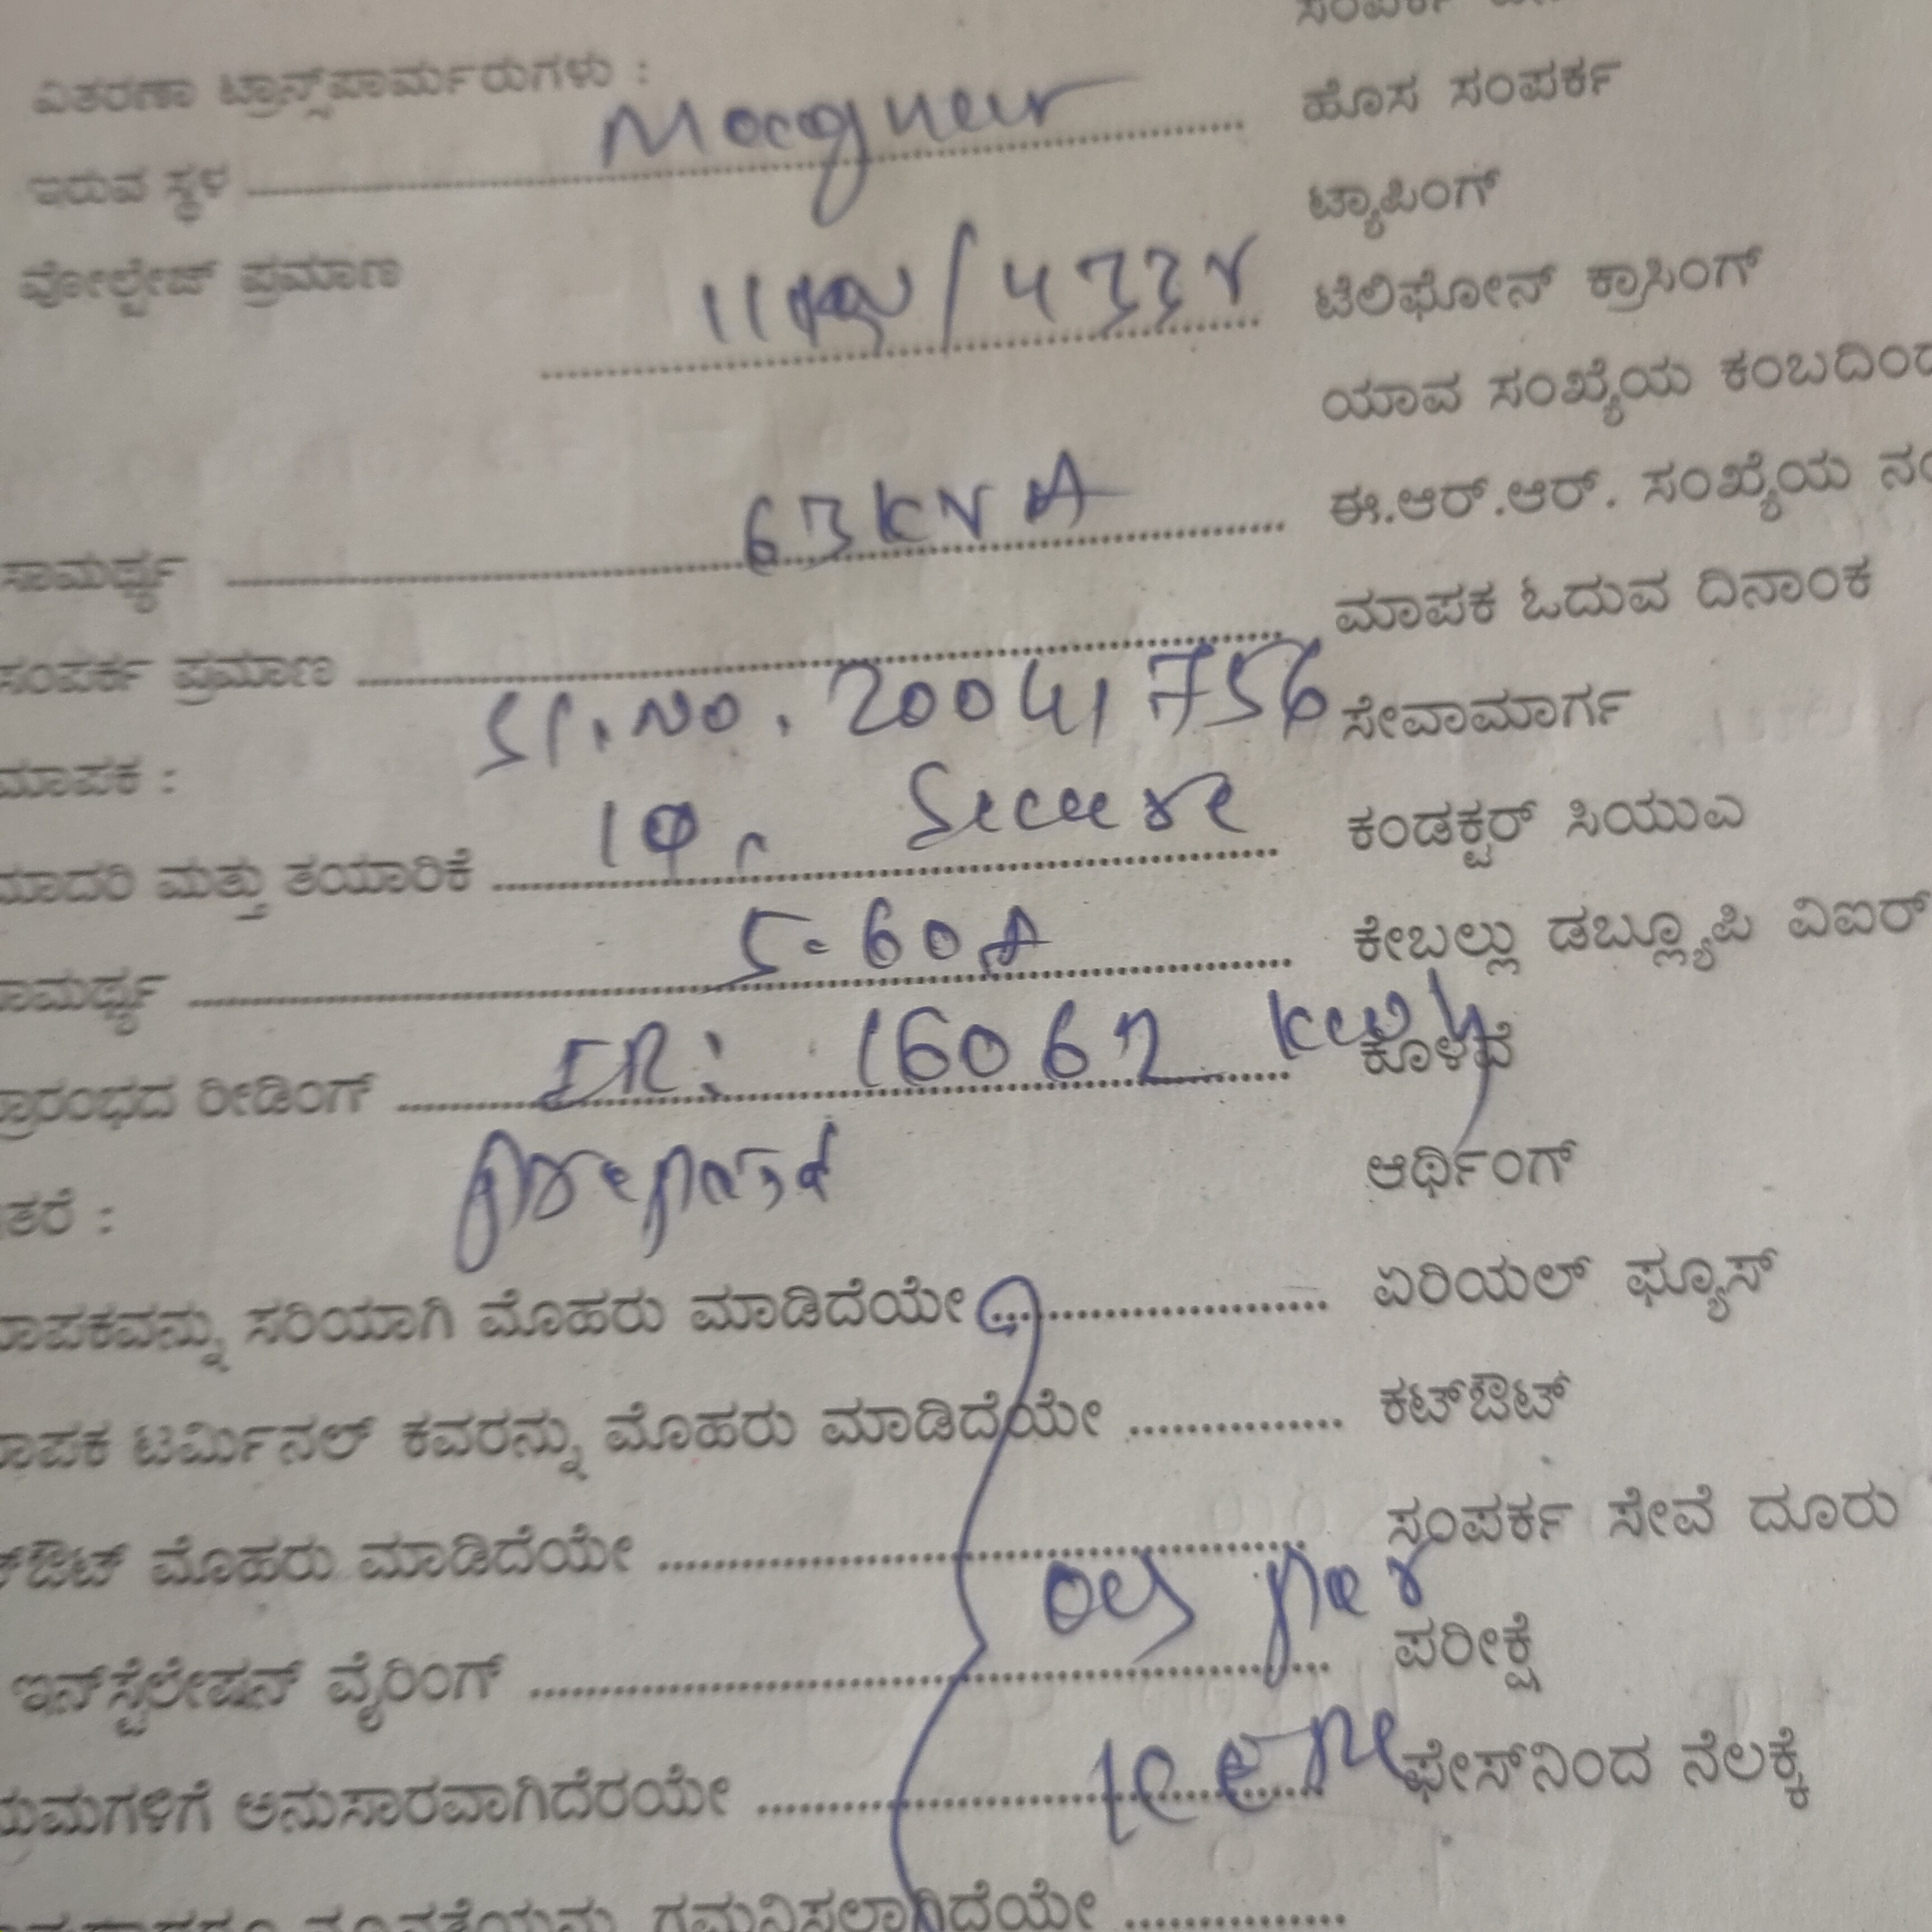 ವಿತರಣಾ ಟ್ರಾನ್ಸ್‌ಪಾರ್ಮರುಗಳು :
ಇರುವ ಸ್ಥಳ
ವೋಲ್ಟೇಜ್ ಪ್ರಮಾಣ 11 / 433v
ಸಾಮರ್ಥ್ಯ 63 KVA
ಸಂಪರ್ಕ ಪ್ರಮಾಣ
ಮಾಪಕ : Sl. No. 20041756
ಮಾದರಿ ಮತ್ತು ತಯಾರಿಕೆ 1φ, Secure
ಸಾಮರ್ಥ್ಯ 5-60A
ಪ್ರಾರಂಭದ ರೀಡಿಂಗ್ IR: 16062 kwh
ಇತರೆ :
ಮಾಪಕವನ್ನು ಸರಿಯಾಗಿ ಮೊಹರು ಮಾಡಿದೆಯೇ
ಮಾಪಕ ಟರ್ಮಿನಲ್ ಕವರನ್ನು ಮೊಹರು ಮಾಡಿದೆಯೇ
ಮೊಹರು ಮಾಡಿದೆಯೇ
ಇನ್‌ಸ್ಟೆಲೇಷನ್ ವೈರಿಂಗ್ as per
ಅನುಸಾರವಾಗಿದೆರಯೇ
ಗಮನಿಸಲಾಗಿದೆಯೇ
ಹೊಸ ಸಂಪರ್ಕ
ಟ್ಯಾಪಿಂಗ್
ಟೆಲಿಫೋನ್ ಕ್ರಾಸಿಂಗ್
ಯಾವ ಸಂಖ್ಯೆಯ ಕಂಬದಿಂದ
ಈ.ಆರ್.ಆರ್. ಸಂಖ್ಯೆಯ
ಮಾಪಕ ಓದುವ ದಿನಾಂಕ
ಸೇವಾಮಾರ್ಗ
ಕಂಡಕ್ಟರ್ ಸಿಯುಎ
ಕೇಬಲ್ಲು ಡಬ್ಲ್ಯೂಪಿ ವಿಐರ್
ಕೊಳವೆ
ಆರ್ಥಿಂಗ್
ಏರಿಯಲ್ ಫ್ಯೂಸ್
ಕಟ್‌ಔಟ್
ಸಂಪರ್ಕ ಸೇವೆ ದೂರು
ಪರೀಕ್ಷೆ
ಫೇಸ್‌ನಿಂದ ನೆಲಕ್ಕೆ